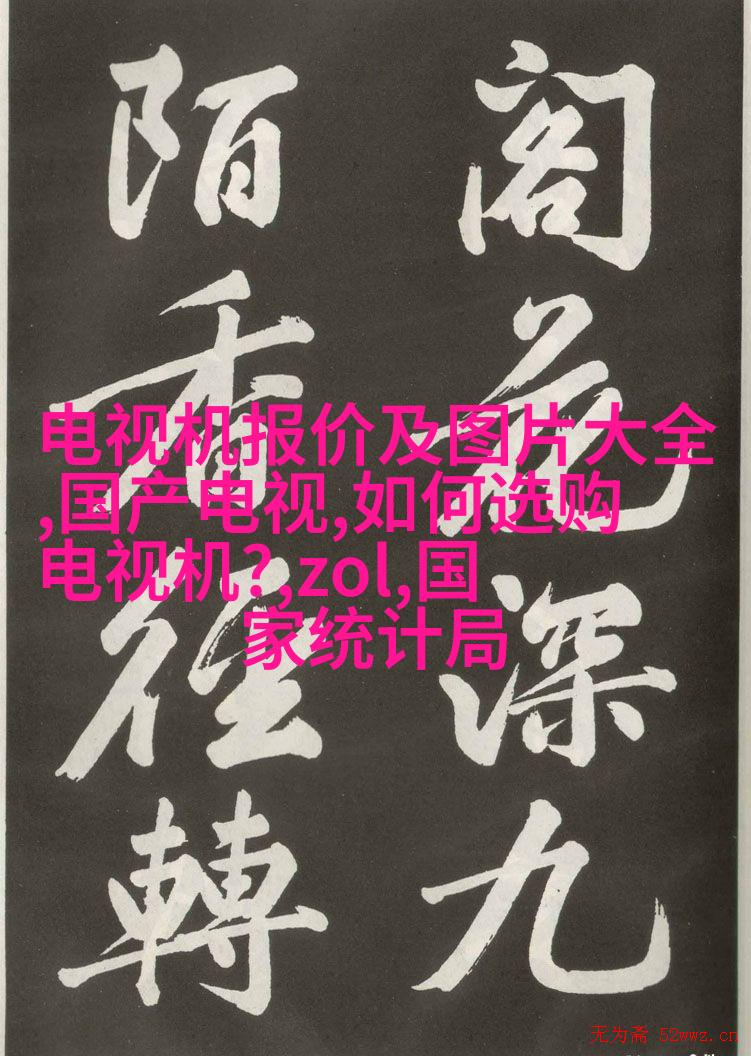 閣花深九
陌香徑轉
电视机报价及图片大全
,国产电视,如何选购
电视机?,zol,国
家统计局
无为斋 52wwz.cn